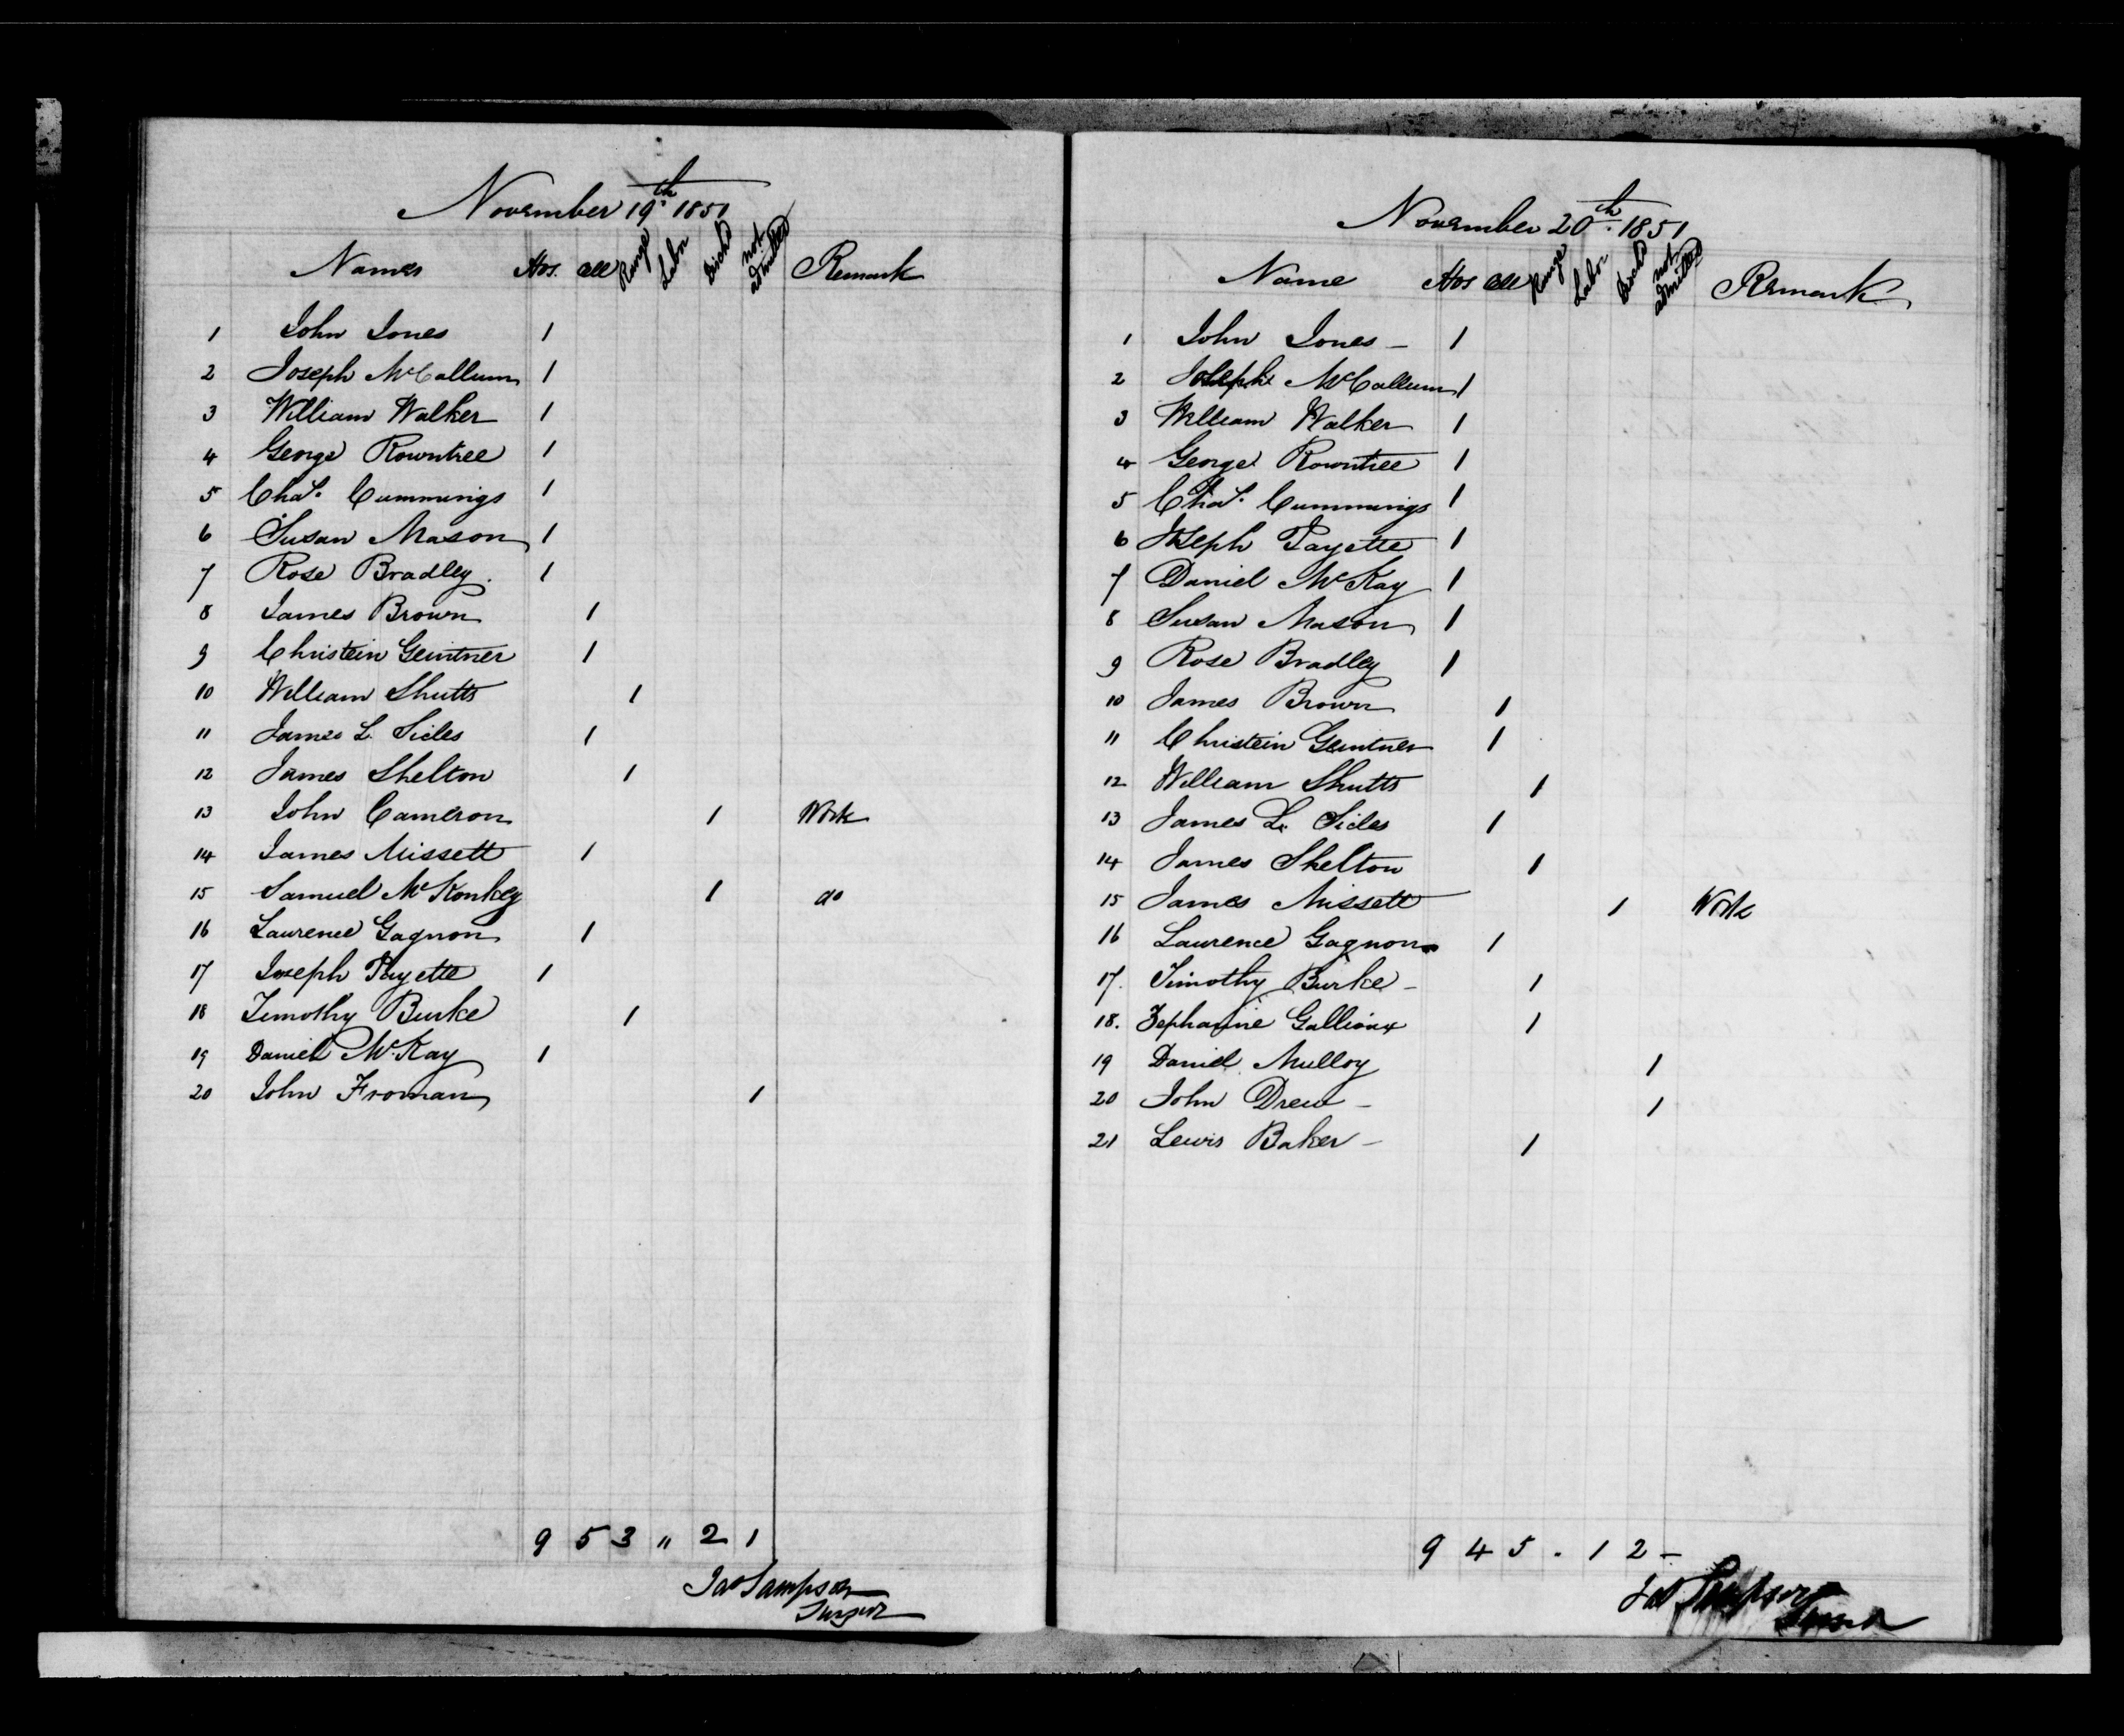 November 19th 1851
Names Hos. Cell Range Labor Disch'd not admitted Remark
1 John Jones 1
2 Joseph McCallum 1
3 William Walker 1
4 George Rowntree 1
5 Chas. Cummings 1
6 Susan Mason 1
7 Rose Bradley. 1
8 James Brown 1
9 Christein Geintner 1
10 William Shutts 1
11 James L. Sides 1
12 James Shelton 1
13 John Cameron 1 Work
14 James Missett 1
15 Samuel McKonkey 1 do
16 Laurence Gagnon 1
17 Joseph Payette 1
18 Timothy Burke 1
19 Daniel McKay 1
20 John Froman 1
9 5 3 " 2 1
Jas Sampson
Surgeon
November 20th. 1851
Name Hos Cell Range Labor Disch'd not admitted Remark
1 John Jones – 1
2 Joseph McCallum 1
3 William Walker 1
4 George Rowntree 1
5 Chas. Cummings 1
6 Joseph Payette 1
7 Daniel McKay 1
8 Susan Mason 1
9 Rose Bradley 1
10 James Brown 1
11 Christein Geintner 1
12 William Shutts 1
13 James L. Sides 1
14 James Shelton 1
15 James Missett 1 Work
16 Laurence Gagnon 1
17. Timothy Burke – 1
18. Zepharine Gallioux 1
19 Daniel Mulloy 1
20 John Drew – 1
21 Lewis Baker – 1
9 4 5 . 1 2 –
Jas Sampson
Surgeon